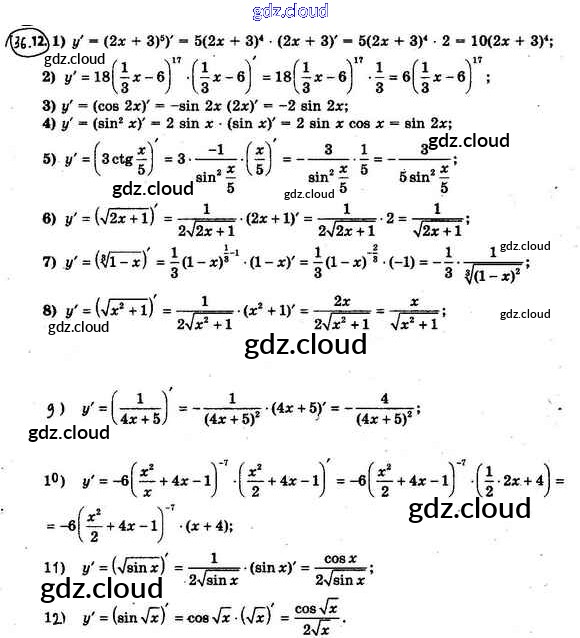 gdz.cloud
36.12. 1) y' = (2x + 3)⁵)' = 5(2x + 3)⁴ · (2x + 3)' = 5(2x + 3)⁴ · 2 = 10(2x + 3)⁴;
2) y' = 18(1/3 x − 6)¹⁷ · (1/3 x − 6)' = 18(1/3 x − 6)¹⁷ · 1/3 = 6(1/3 x − 6)¹⁷;
gdz.cloud gdz.cloud
3) y' = (cos 2x)' = −sin 2x (2x)' = −2 sin 2x;
4) y' = (sin² x)' = 2 sin x · (sin x)' = 2 sin x cos x = sin 2x;
gdz.cloud
5) y' = (3 ctg x/5)' = 3 · −1/(sin² x/5) · (x/5)' = −3/(sin² x/5) · 1/5 = −3/(5 sin² x/5);
gdz.cloud gdz.cloud gdz.cloud
6) y' = (√(2x + 1))' = 1/(2√(2x + 1)) · (2x + 1)' = 1/(2√(2x + 1)) · 2 = 1/√(2x + 1);
gdz.cloud
7) y' = (∛(1 − x))' = 1/3 (1 − x)^(1/3 −1) · (1 − x)' = 1/3 (1 − x)^(−2/3) · (−1) = −1/3 · 1/∛((1 − x)²);
gdz.cloud
8) y' = (√(x² + 1))' = 1/(2√(x² + 1)) · (x² + 1)' = 2x/(2√(x² + 1)) = x/√(x² + 1);
gdz.cloud
gdz.cloud
gdz.cloud
9) y' = (1/(4x + 5))' = −1/(4x + 5)² · (4x + 5)' = −4/(4x + 5)²;
gdz.cloud
10) y' = −6(x²/x + 4x − 1)⁻⁷ · (x²/2 + 4x − 1)' = −6(x²/2 + 4x − 1)⁻⁷ · (1/2 · 2x + 4) =
gdz.cloud
= −6(x²/2 + 4x − 1)⁻⁷ · (x + 4);
11) y' = (√(sin x))' = 1/(2√(sin x)) · (sin x)' = cos x/(2√(sin x));
gdz.cloud gdz.cloud
12) y' = (sin √x)' = cos √x · (√x)' = cos √x/(2√x).
gdz.cloud